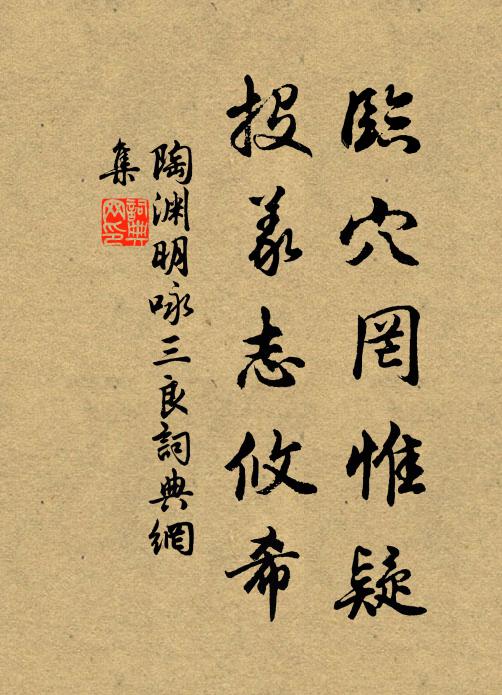 臨穴罔惟疑
投義志攸希
陶渊明咏三良詞典網
集
詞典
网印